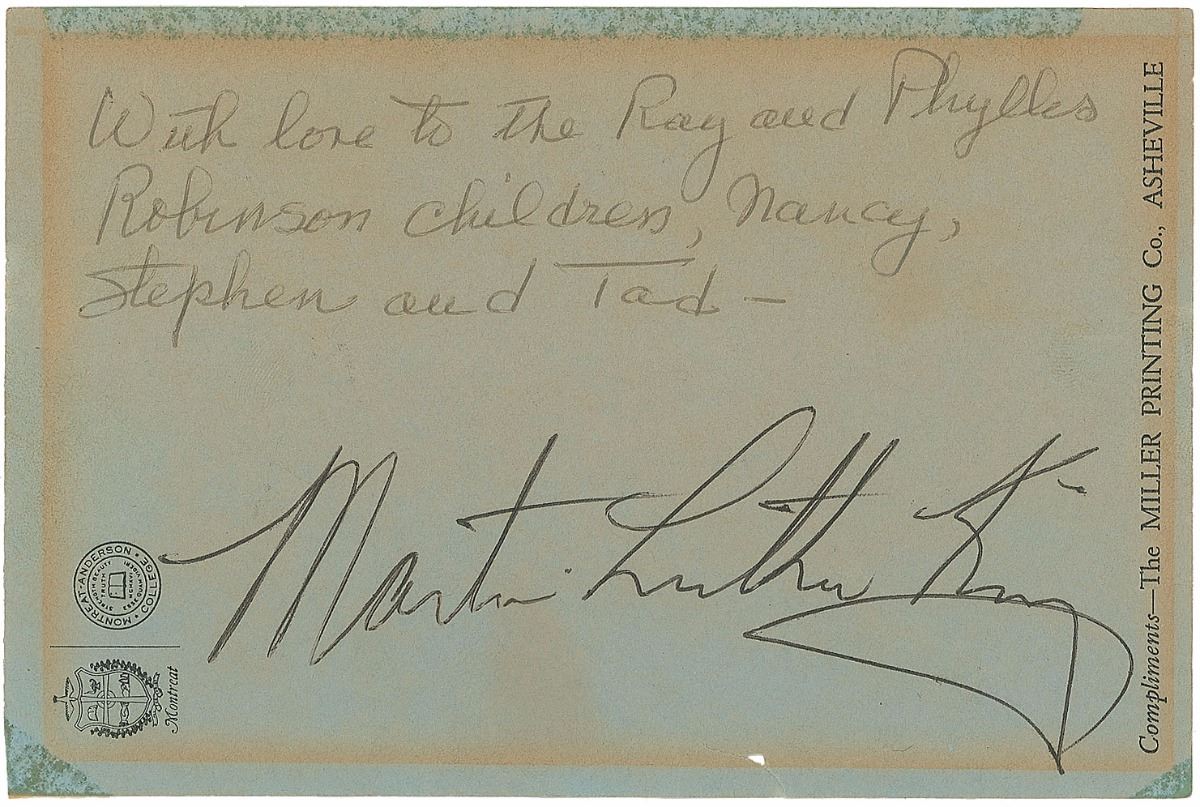 With love to the Ray and Phyllis
Robinson children, Nancy,
Stephen and Tad —
Martin Luther King
MONTREAT-ANDERSON COLLEGE
Montreat
Compliments—The MILLER PRINTING Co., ASHEVILLE